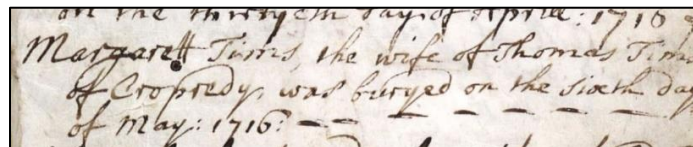 on the thirtyeth day of Aprill: 1716
Margarett Tims, the wife of Thomas Tims
of Cropredy, was buryed on the sixth day
of May: 1716: — — — — — — —